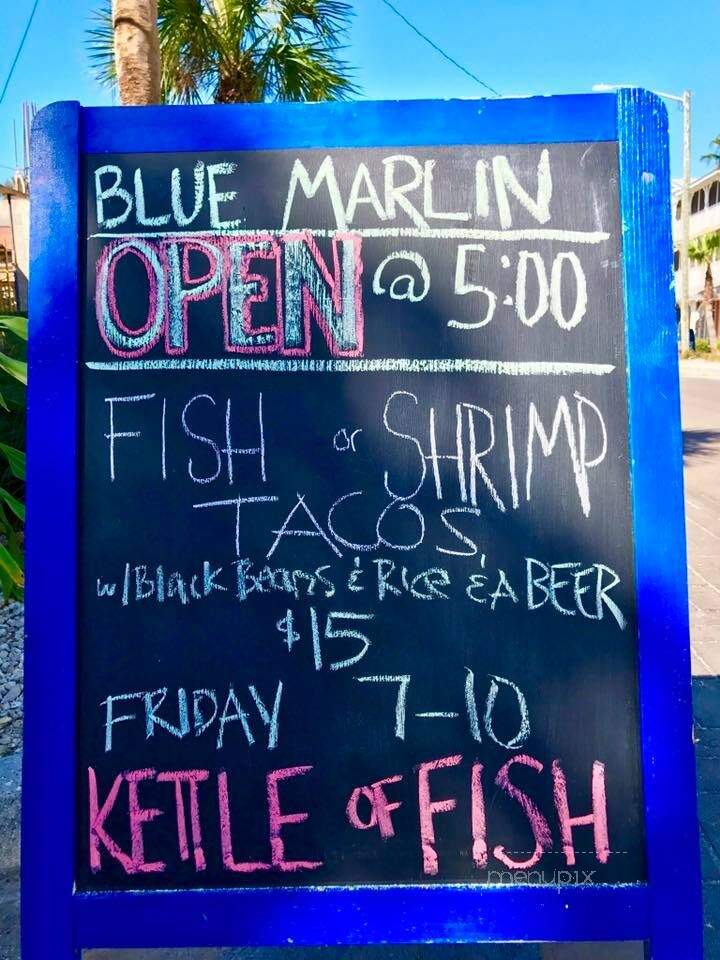 BLUE MARLIN
OPEN @ 5:00
FISH or SHRIMP
TACOS
w/Black Beans & Rice & A BEER
$15
FRIDAY 7-10
KETTLE OF FISH
menupix